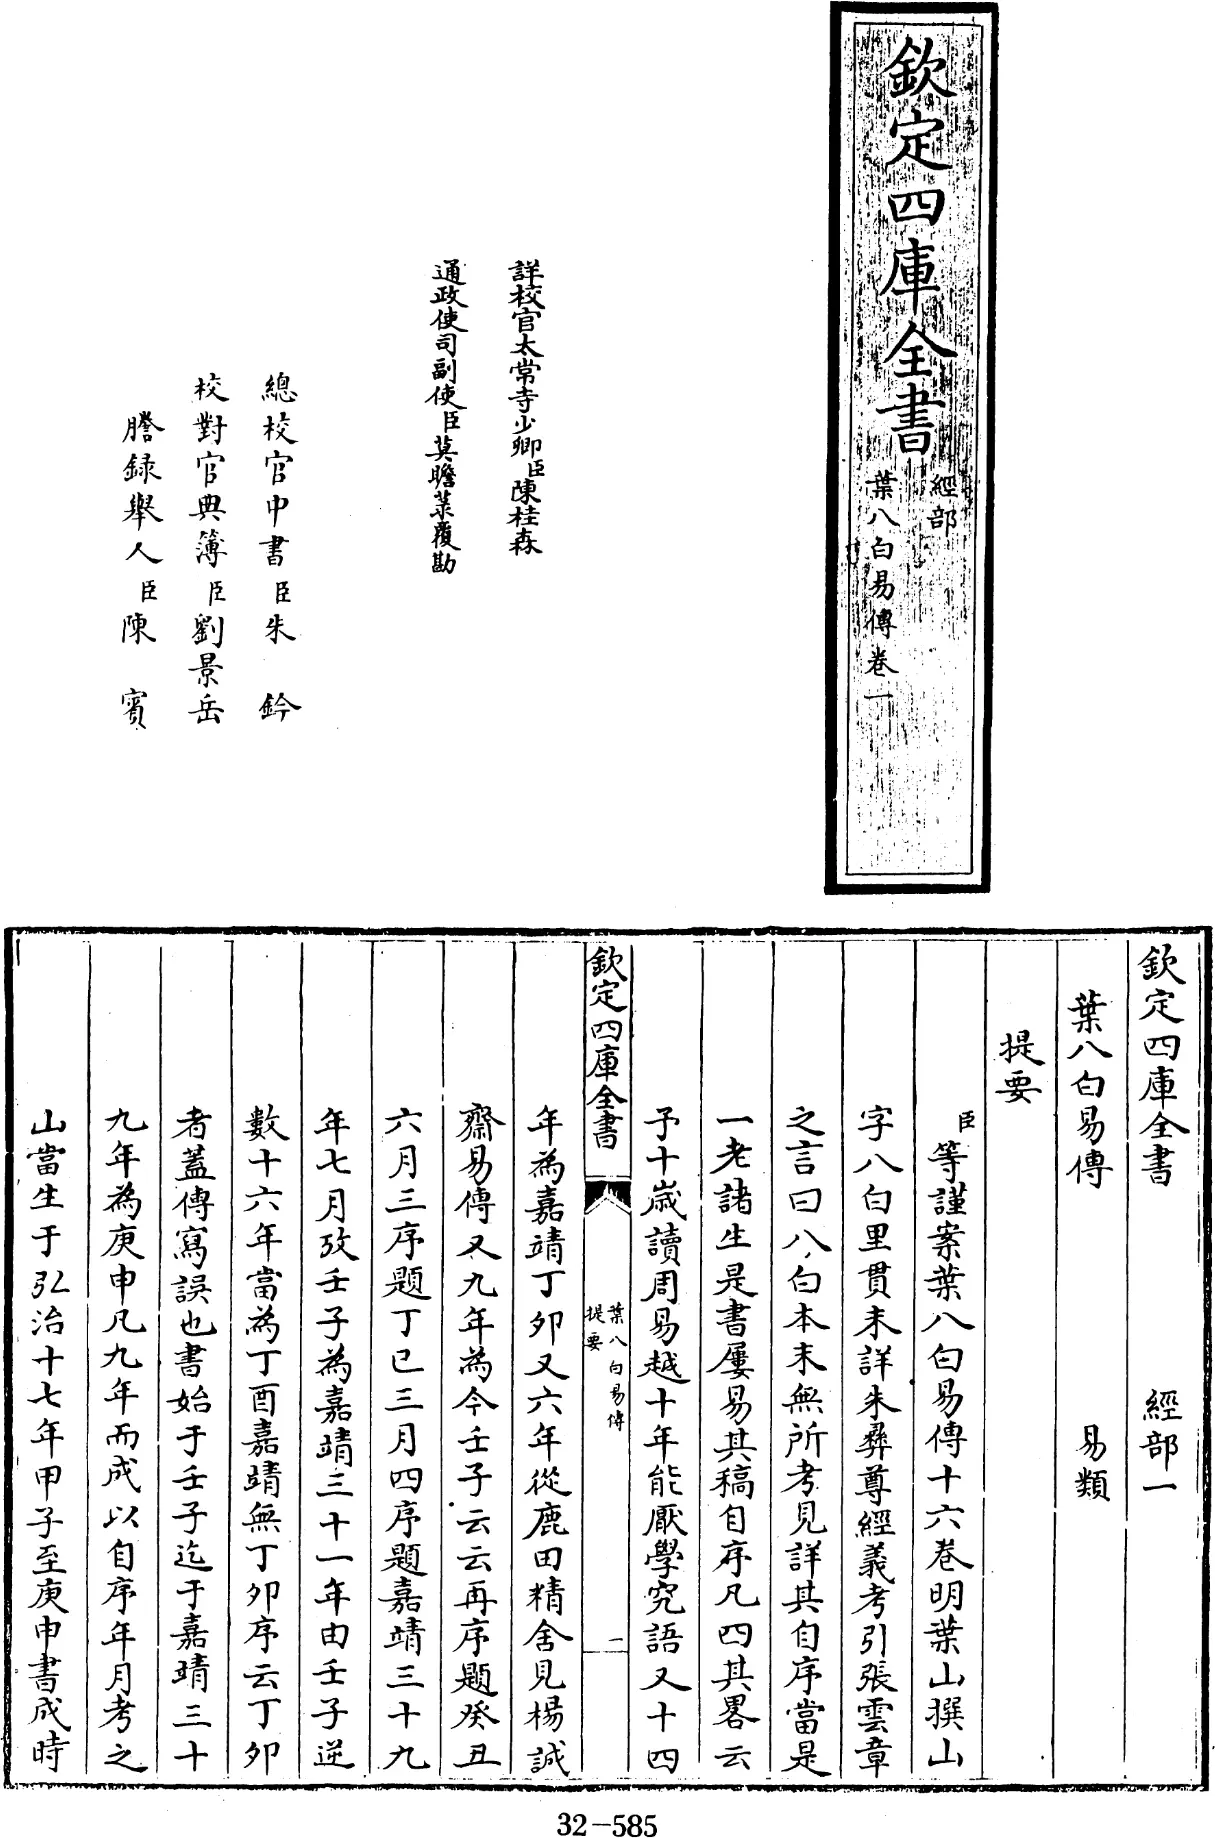 欽定四庫全書
經部
葉八白易傳卷一
詳校官太常寺少卿臣陳桂森
通政使司副使臣莫瞻菉覆勘
總校官中書臣朱鈐
校對官典簿臣劉景岳
謄録舉人臣陳賓
欽定四庫全書 經部一
葉八白易傳 易類
提要
臣等謹案葉八白易傳十六卷明葉山撰山
字八白里貫未詳朱彝尊經義考引張雲章
之言曰八白本末無所考見詳其自序當是
一老諸生是書屢易其稿自序凡四其畧云
予十歲讀周易越十年能厭學究語又十四
欽定四庫全書
葉八白易傳
提要
二
年為嘉靖丁卯又六年從鹿田精舍見楊誠
齋易傳又九年為今壬子云云再序題癸丑
六月三序題丁巳三月四序題嘉靖三十九
年七月攷壬子為嘉靖三十一年由壬子逆
數十六年當為丁酉嘉靖無丁卯序云丁卯
者蓋傳寫誤也書始于壬子迄于嘉靖三十
九年為庚申凡九年而成以自序年月考之
山當生于弘治十七年甲子至庚申書成時
32-585